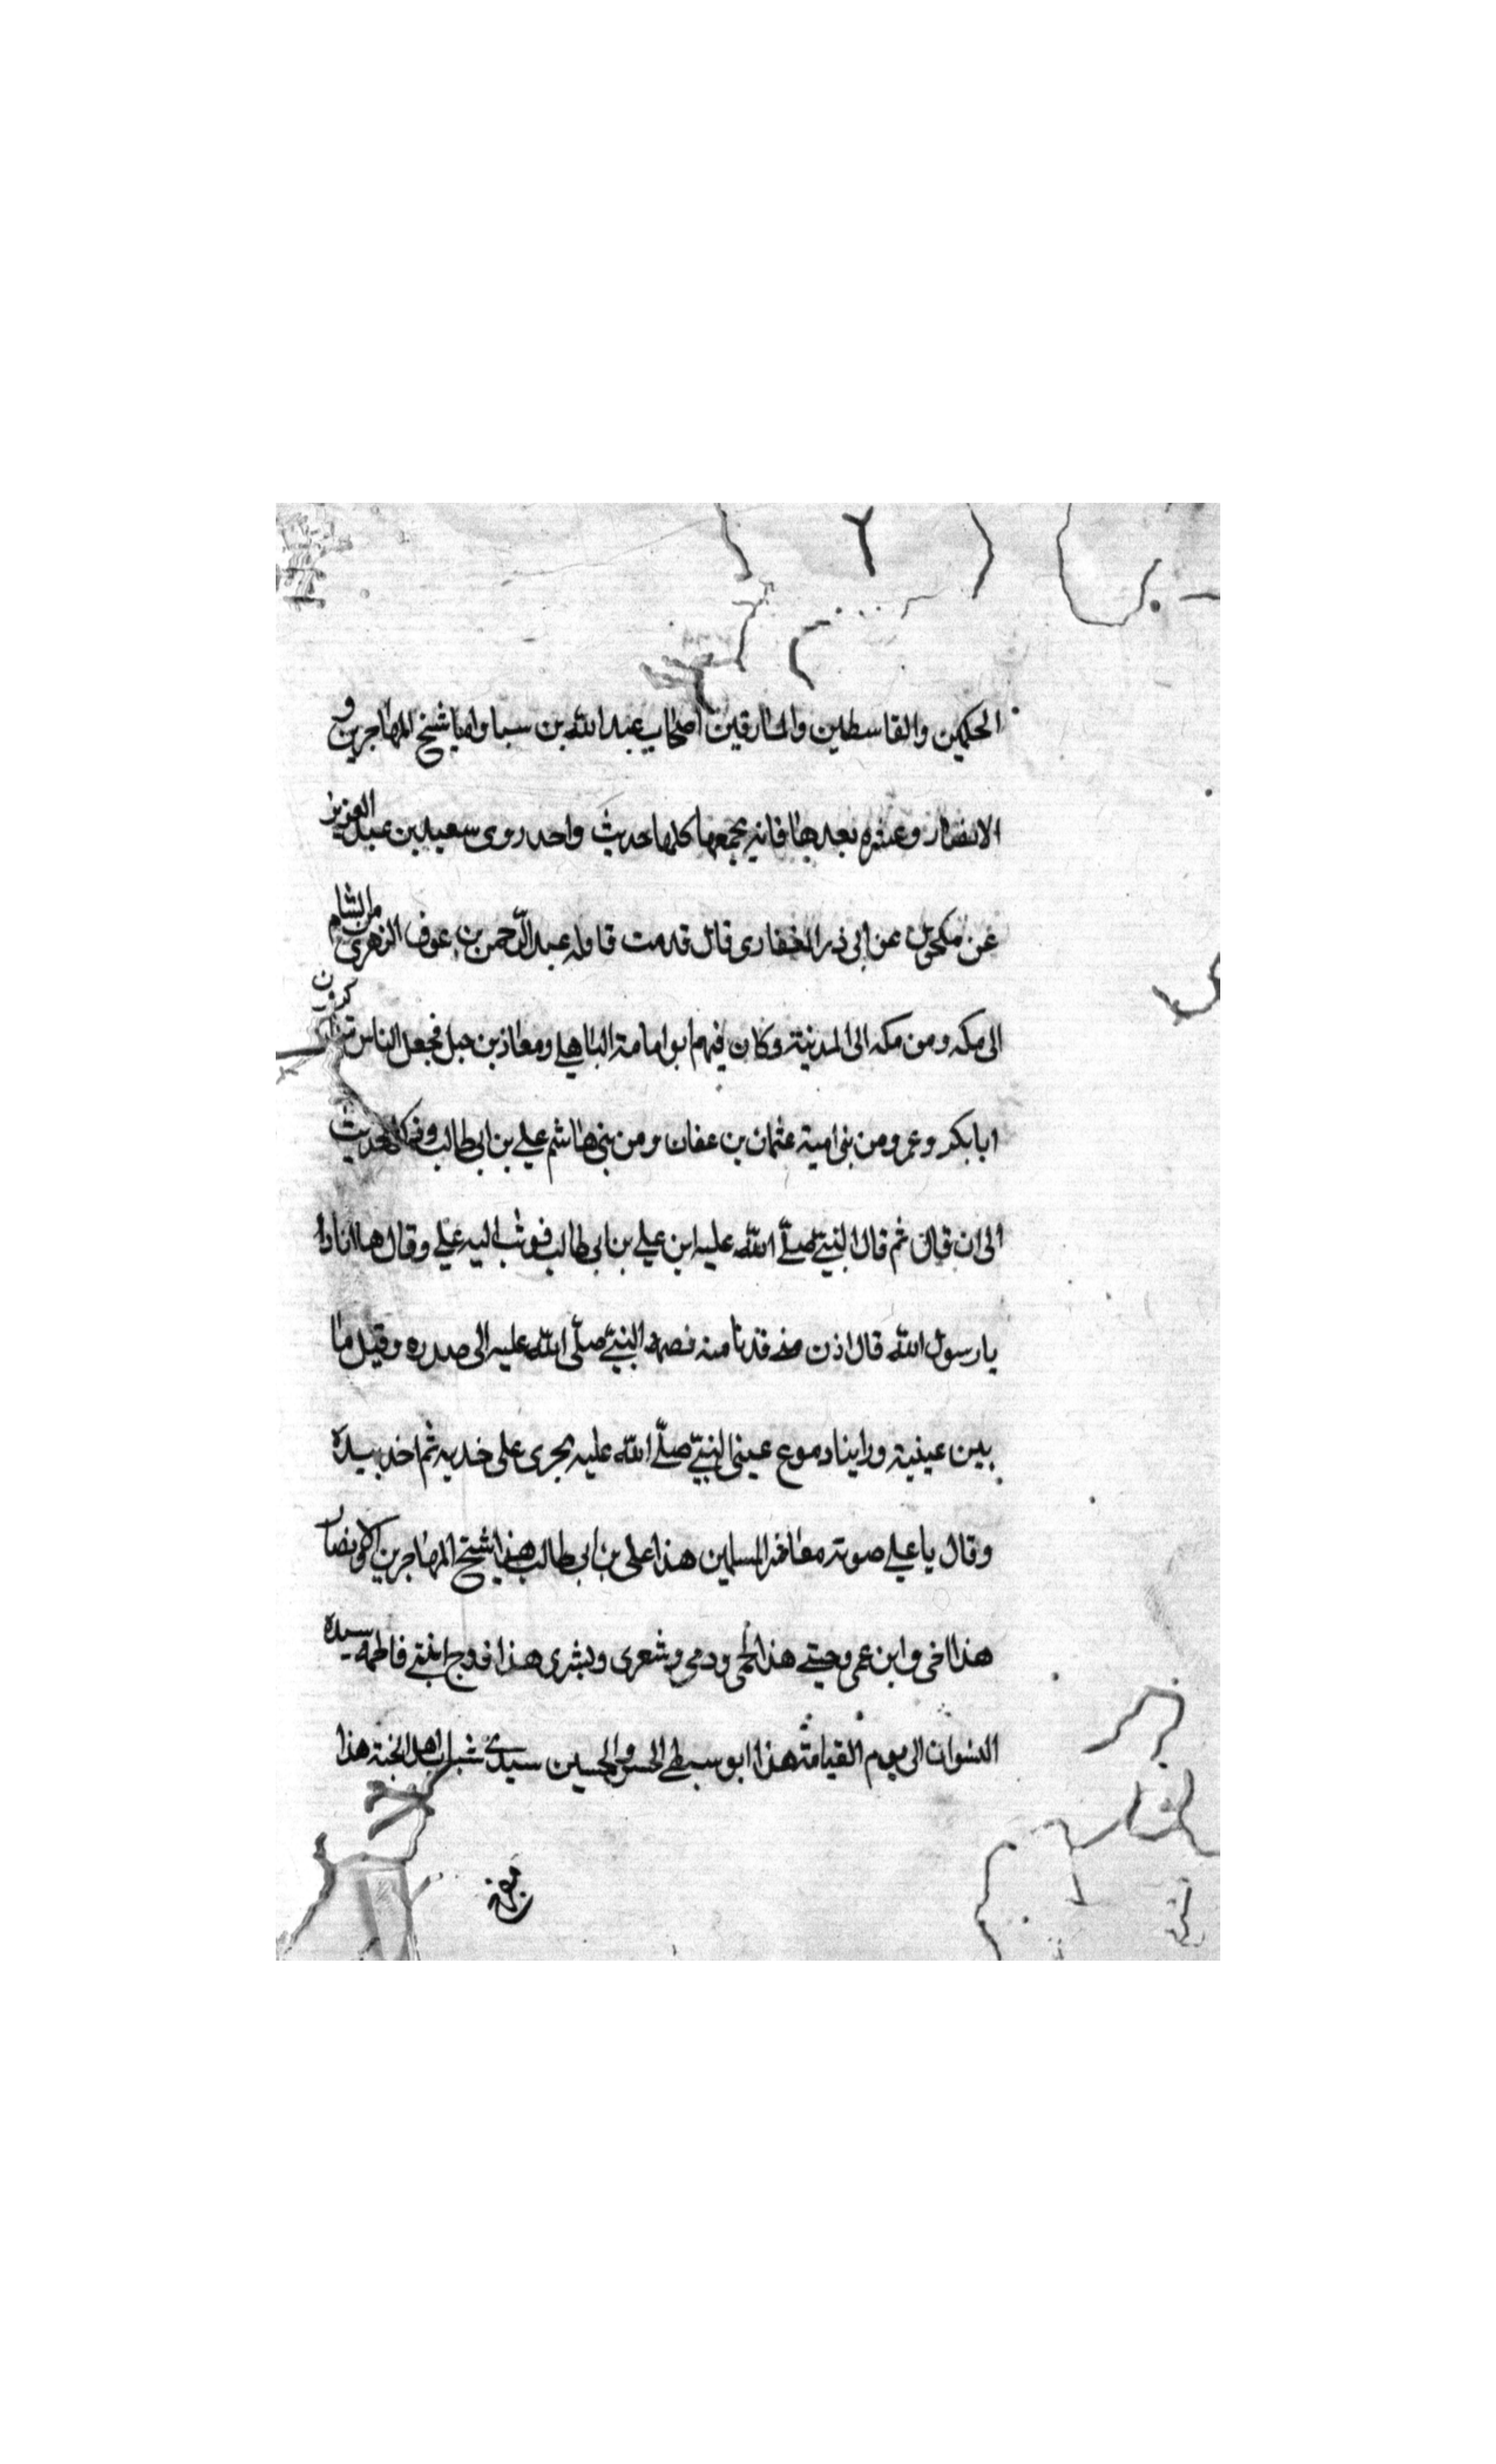 الحكمين والقاسطين والمارقين اصحاب عبد الله بن سبا واما شيخ المهاجرين و
الانصار وعشرة بعدها فانه يجمعها كلها حديث واحد روى سعيد بن عبد العزيز
عن مكحول عن ابى ذر الغفارى قال قدمت قافله عبد الرحمن بن عوف الزهرى من الشام
الى مكه ومن مكه الى المدينة وكان فيهم ابو امامة الباهلي ومعاذ بن جبل فجعل الناس يذكرون
ابا بكر وعمر ومن بنى امية عثمان بن عفان ومن بنى هاشم علي بن ابى طالب الحديث
الى ان قال ثم قال النبي صلى الله عليه اين علي بن ابى طالب فوثب اليه علي وقال ها انا ذا
يا رسول الله قال اذن منى فدنا منه فضمه النبي صلى الله عليه الى صدره وقبل ما
بين عينيه وراينا دموع عينى النبي صلى الله عليه يجرى على خديه ثم اخذ بيده
وقال يا علي صوته معاشر المسلمين هذا على بن ابى طالب هذا شيخ المهاجرين والانصار
هذا اخى وابن عمى وختنى هذا لحمى ودمى وشعرى وبشرى هذا زوج ابنتى فاطمه سيدة
النسوان الى يوم القيامة هذا ابو سبطى الحسن والحسين سيدى شباب اهل الجنة هذا